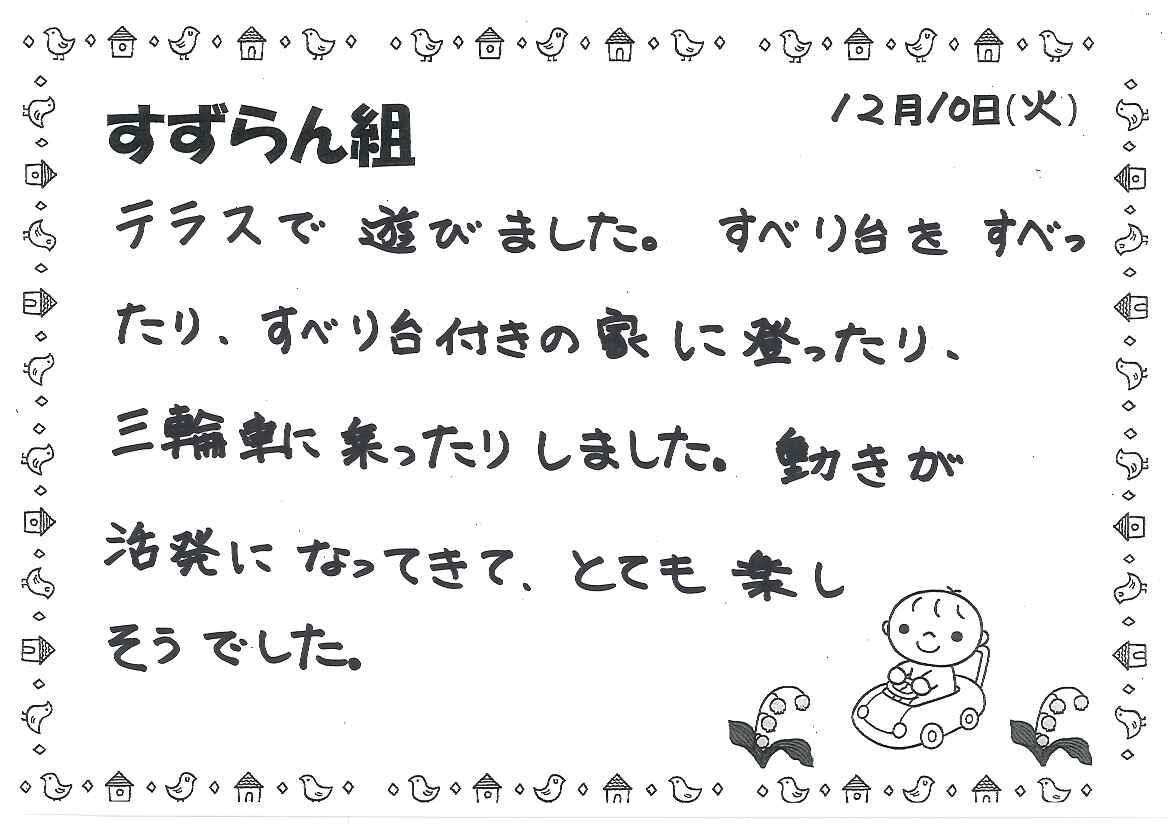 12月10日(火)
すずらん組
テラスで 遊びました。 すべり台を すべっ
たり、すべり台付きの家に登ったり、
三輪車に乗ったりしました。動きが
活発になってきて、とても楽し
そうでした。